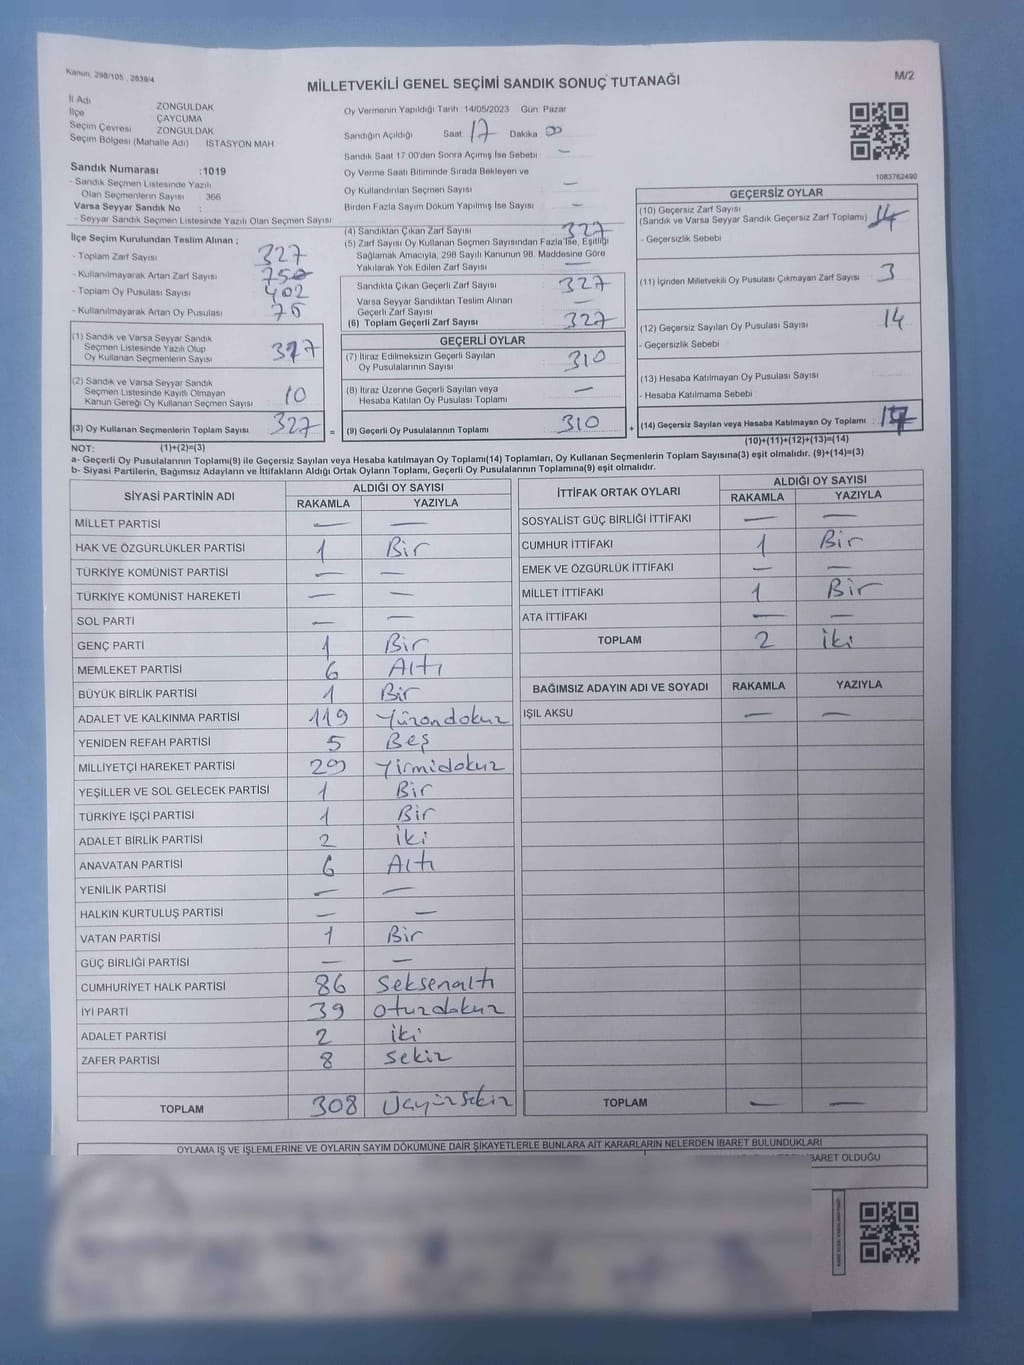 Kanun, 298/105 , 2839/4
MİLLETVEKİLİ GENEL SEÇİMİ SANDIK SONUÇ TUTANAĞI
M/2
İl Adı ZONGULDAK
İlçe ÇAYCUMA
Seçim Çevresi ZONGULDAK
Seçim Bölgesi (Mahalle Adı) İSTASYON MAH.
Oy Vermenin Yapıldığı Tarih :14/05/2023 Gün: Pazar
Sandığın Açıldığı Saat 17 Dakika 00
Sandık Saat 17.00'den Sonra Açımış İse Sebebi : —
Oy Verme Saati Bitiminde Sırada Bekleyen ve
Oy Kullandırılan Seçmen Sayısı : —
Birden Fazla Sayım Döküm Yapılmış İse Sayısı : —
1083762490
Sandık Numarası :1019
- Sandık Seçmen Listesinde Yazılı
Olan Seçmenlerin Sayısı : 366
Varsa Seyyar Sandık No :
- Seyyar Sandık Seçmen Listesinde Yazılı Olan Seçmen Sayısı :
İlçe Seçim Kurulundan Teslim Alınan ;
- Toplam Zarf Sayısı : 327
- Kullanılmayarak Artan Zarf Sayısı :
- Toplam Oy Pusulası Sayısı : 402
- Kullanılmayarak Artan Oy Pusulası : 75
(1) Sandık ve Varsa Seyyar Sandık
Seçmen Listesinde Yazılı Olup
Oy Kullanan Seçmenlerin Sayısı :
(2) Sandık ve Varsa Seyyar Sandık
Seçmen Listesinde Kayıtlı Olmayan
Kanun Gereği Oy Kullanan Seçmen Sayısı : 10
(3) Oy Kullanan Seçmenlerin Toplam Sayısı : 327
(4) Sandıktan Çıkan Zarf Sayısı : 327
(5) Zarf Sayısı Oy Kullanan Seçmen Sayısından Fazla İse, Eşitliği
Sağlamak Amacıyla, 298 Sayılı Kanunun 98. Maddesine Göre
Yakılarak Yok Edilen Zarf Sayısı : —
Sandıkta Çıkan Geçerli Zarf Sayısı : 327
Varsa Seyyar Sandıktan Teslim Alınan
Geçerli Zarf Sayısı : —
(6) Toplam Geçerli Zarf Sayısı : 327
GEÇERLİ OYLAR
(7) İtiraz Edilmeksizin Geçerli Sayılan
Oy Pusulalarının Sayısı : 310
(8) İtiraz Üzerine Geçerli Sayılan veya
Hesaba Katılan Oy Pusulası Toplamı : —
= (9) Geçerli Oy Pusulalarının Toplamı : 310
GEÇERSİZ OYLAR
(10) Geçersiz Zarf Sayısı
(Sandık ve Varsa Seyyar Sandık Geçersiz Zarf Toplamı) :
- Geçersizlik Sebebi
(11) İçinden Milletvekili Oy Pusulası Çıkmayan Zarf Sayısı : 3
(12) Geçersiz Sayılan Oy Pusulası Sayısı : 14
- Geçersizlik Sebebi :
(13) Hesaba Katılmayan Oy Pusulası Sayısı :
- Hesaba Katılmama Sebebi :
+ (14) Geçersiz Sayılan veya Hesaba Katılmayan Oy Toplamı : 17
NOT: (1)+(2)=(3) (10)+(11)+(12)+(13)=(14)
a- Geçerli Oy Pusulalarının Toplamı(9) ile Geçersiz Sayılan veya Hesaba katılmayan Oy Toplamı(14) Toplamları, Oy Kullanan Seçmenlerin Toplam Sayısına(3) eşit olmalıdır. (9)+(14)=(3)
b- Siyasi Partilerin, Bağımsız Adayların ve İttifakların Aldığı Ortak Oyların Toplamı, Geçerli Oy Pusulalarının Toplamına(9) eşit olmalıdır.
SİYASİ PARTİNİN ADI ALDIĞI OY SAYISI
RAKAMLA YAZIYLA
MİLLET PARTİSİ — —
HAK VE ÖZGÜRLÜKLER PARTİSİ 1 Bir
TÜRKİYE KOMÜNİST PARTİSİ — —
TÜRKİYE KOMÜNİST HAREKETİ — —
SOL PARTİ — —
GENÇ PARTİ 1 Bir
MEMLEKET PARTİSİ 6 Altı
BÜYÜK BİRLİK PARTİSİ 1 Bir
ADALET VE KALKINMA PARTİSİ 119 Yüzondokuz
YENİDEN REFAH PARTİSİ 5 Beş
MİLLİYETÇİ HAREKET PARTİSİ 29 Yirmidokuz
YEŞİLLER VE SOL GELECEK PARTİSİ 1 Bir
TÜRKİYE İŞÇİ PARTİSİ 1 Bir
ADALET BİRLİK PARTİSİ 2 iki
ANAVATAN PARTİSİ 6 Altı
YENİLİK PARTİSİ — —
HALKIN KURTULUŞ PARTİSİ — —
VATAN PARTİSİ 1 Bir
GÜÇ BİRLİĞİ PARTİSİ — —
CUMHURİYET HALK PARTİSİ 86 Seksenaltı
İYİ PARTİ 39 Otuzdokuz
ADALET PARTİSİ 2 iki
ZAFER PARTİSİ 8 Sekiz
TOPLAM 308 Üçyüzsekiz
İTTİFAK ORTAK OYLARI ALDIĞI OY SAYISI
RAKAMLA YAZIYLA
SOSYALİST GÜÇ BİRLİĞİ İTTİFAKI — —
CUMHUR İTTİFAKI 1 Bir
EMEK VE ÖZGÜRLÜK İTTİFAKI — —
MİLLET İTTİFAKI 1 Bir
ATA İTTİFAKI — —
TOPLAM 2 iki
BAĞIMSIZ ADAYIN ADI VE SOYADI RAKAMLA YAZIYLA
IŞIL AKSU — —
TOPLAM — —
OYLAMA İŞ VE İŞLEMLERİNE VE OYLARIN SAYIM DÖKÜMÜNE DAİR ŞİKAYETLERLE BUNLARA AİT KARARLARIN NELERDEN İBARET BULUNDUKLARI
İBARET OLDUĞU